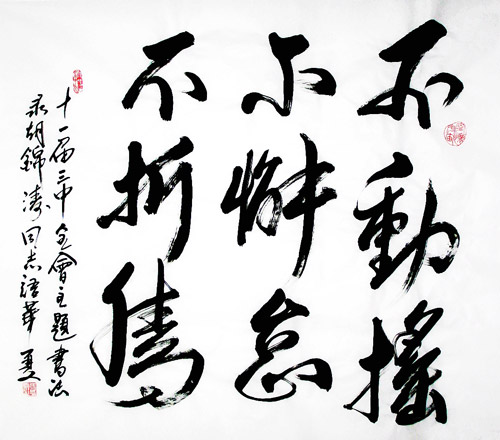 不動搖
不懈怠
不折騰
十一届三中全會主題書法
录胡錦涛同志語華夏